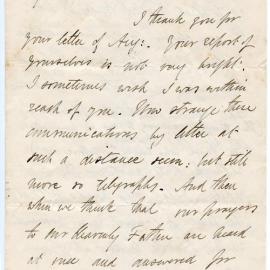 I thank you for
your letter of Aug:. Your report of
yourselves is not very bright.
I sometimes wish I was within
reach of you. How strange these
communications by letter at
such a distance seem: but still
more so telegraphs. And then
when we think that our prayers
to our Heavenly Father are heard
at once and answered for